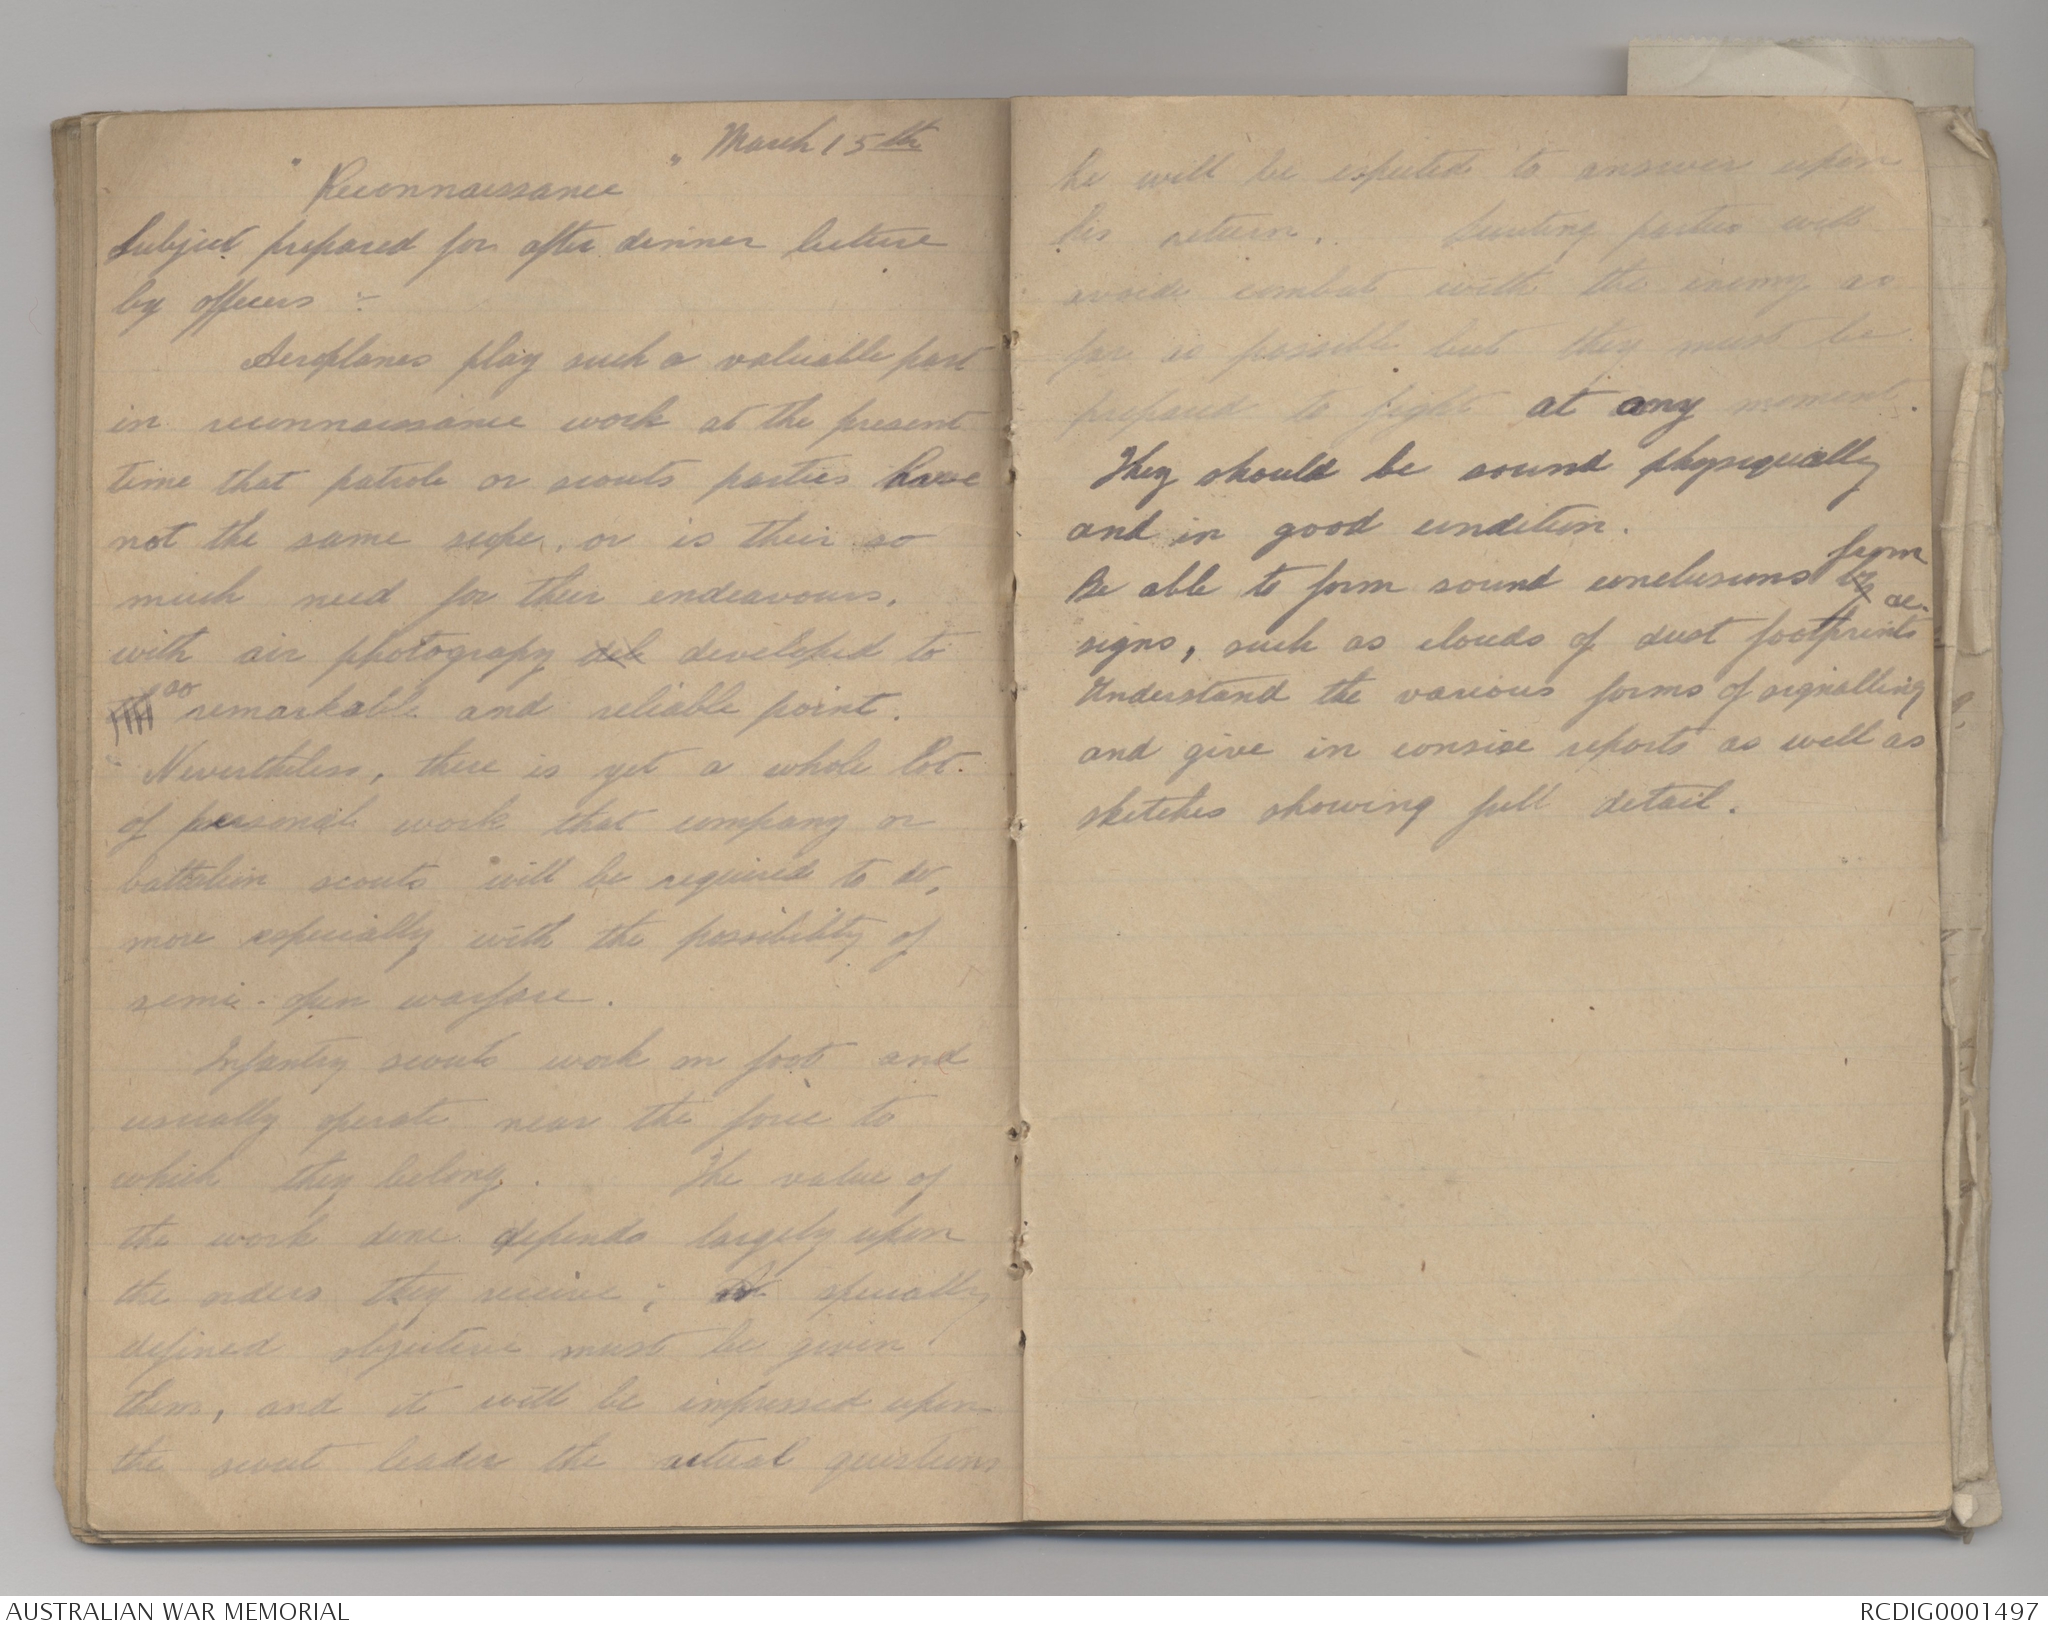 March 15th
" Reconnaissance "
Subject prepared for after dinner lecture
by officers :-
Aeroplanes play such a valuable part
in reconnaissance work at the present
time that patrols or scouts parties have
not the same scope, or is their so
much need for their endeavours,
with air photograpy developed to
so remarkable and reliable point.
Nevertheless, there is yet a whole lot
of personal work that company or
battalion scouts will be required to do,
more especially with the possibility of
semi-open warfare.
Infantry scouts work on foot and
usually operate near the force to
which they belong. The value of
the work done depends largely upon
the orders they receive; specially
defined objective must be given
them, and it will be impressed upon
the scout leader the actual questions
he will be expected to answer upon
his return. Scouting parties will
avoid combat with the enemy as
far as possible but they must be
prepared to fight at any moment.
They should be sound physiqually
and in good condition.
Be able to form sound conclusions by from
signs, such as clouds of dust footprints
Understand the various forms of signalling
and give in consise reports as well as
sketches showing full detail.
AUSTRALIAN WAR MEMORIAL
RCDIG0001497